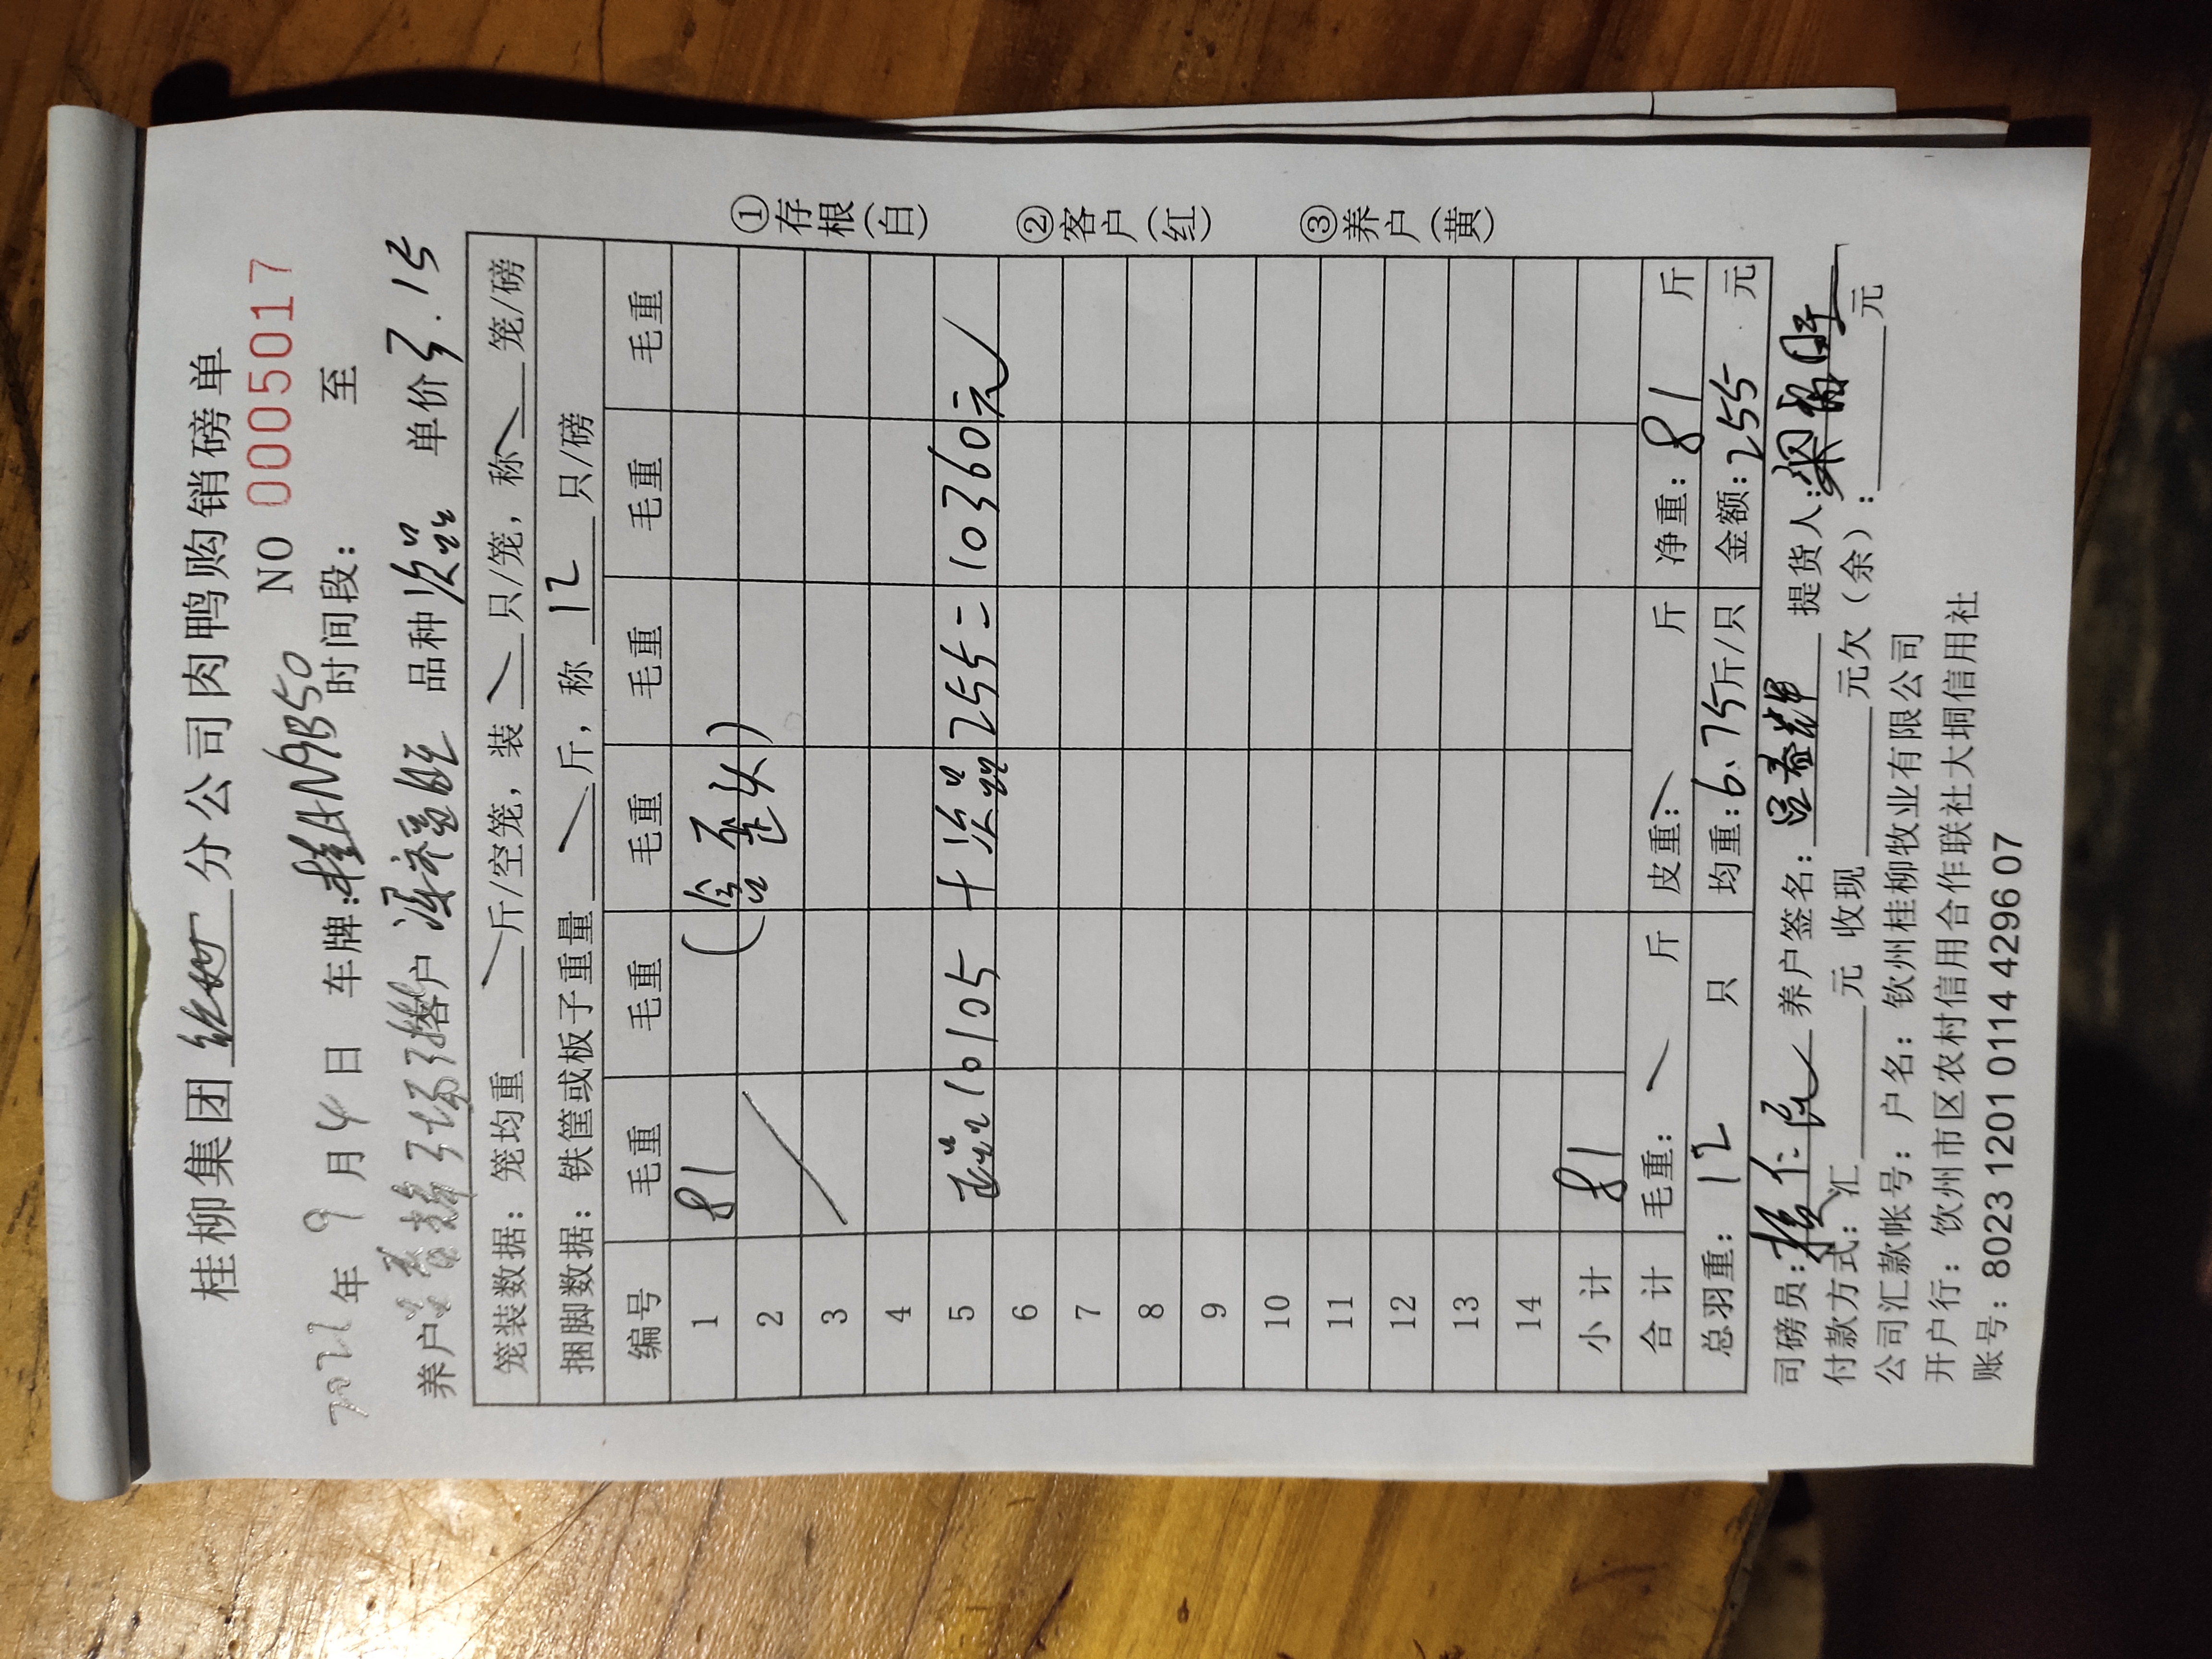 桂柳集团 分公司肉鸭购销磅单
NO 0005017
2022年9月4日 车牌:桂AN9B50 时间段: 至
养户 客户 品种次品 单价3.15
笼装数据:笼均重 斤/空笼,装 只/笼,称 笼/磅
捆脚数据:铁筐或板子重量 斤,称 12 只/磅
编号 毛重 毛重 毛重 毛重 毛重 毛重
1 81 (含歪头)
2
3
4
5 正品10105+次品255=10360元
6
7
8
9
10
11
12
13
14
小计 81
合计 毛重: 斤 皮重: 斤 净重:81 斤
总羽重:12 只 均重:6.75斤/只 金额:255 元
司磅员: 养户签名: 提货人:
付款方式:汇 元 收现 元欠(余): 元
公司汇款帐号:户名:钦州桂柳牧业有限公司
开户行:钦州市区农村信用合作联社大垌信用社
账号:8023 1201 0114 4296 07
①存根(白) ②客户(红) ③养户(黄)